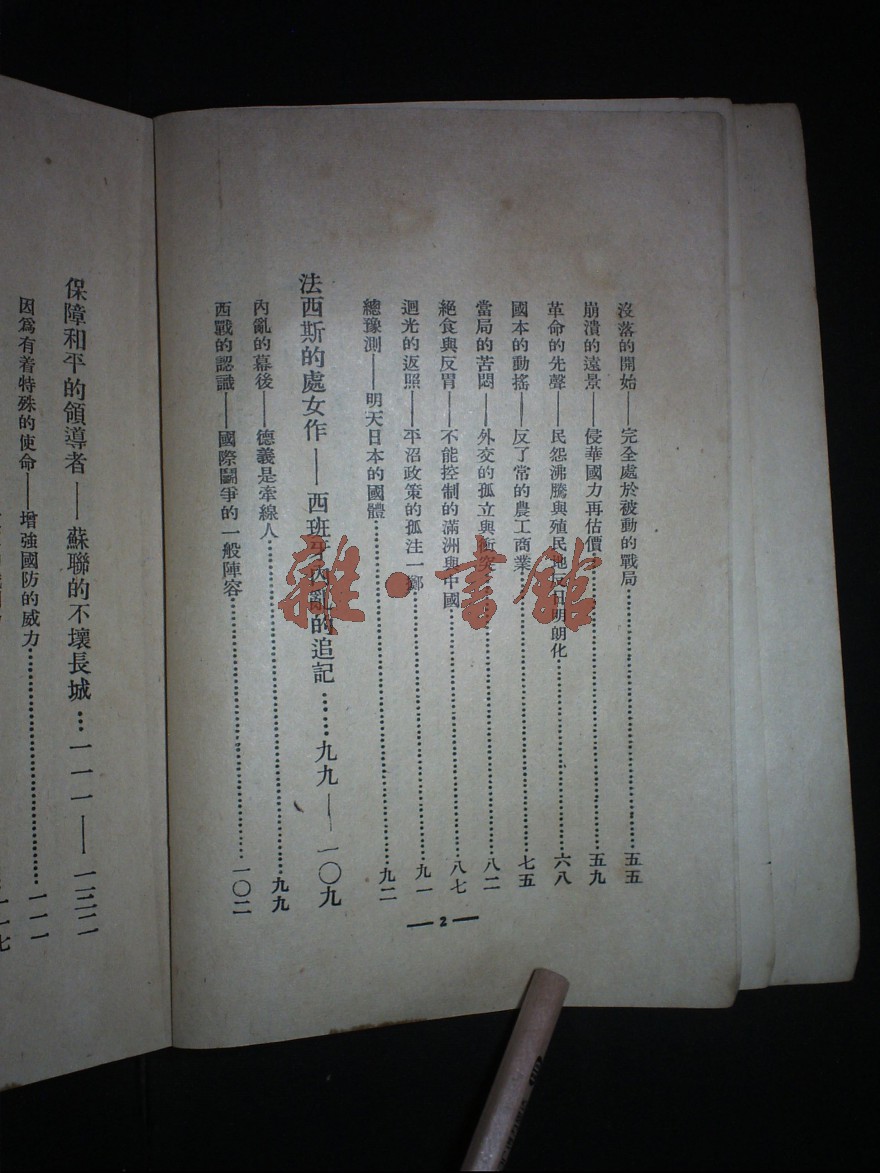 沒落的開始——完全處於被動的戰局…………五五
崩潰的遠景——侵華國力再估價…………五九
革命的先聲——民怨沸騰與殖民地反日明朗化…………六八
國本的動搖——反了常的農工商業…………七五
當局的苦悶——外交的孤立與衝突…………八二
絕食與反胃——不能控制的滿洲與中國…………八七
迴光的返照——平沼政策的孤注一擲…………九一
總豫測——明天日本的國體…………九二
法西斯的處女作——西班牙內亂的追記……九九——一〇九
內亂的幕後——德義是牽線人…………九九
西戰的認識——國際鬭爭的一般陣容…………一〇二
—2—
保障和平的領導者——蘇聯的不壞長城…一一一——一三二
因爲有着特殊的使命——增強國防的威力…………一一一
一一七
雜·書館